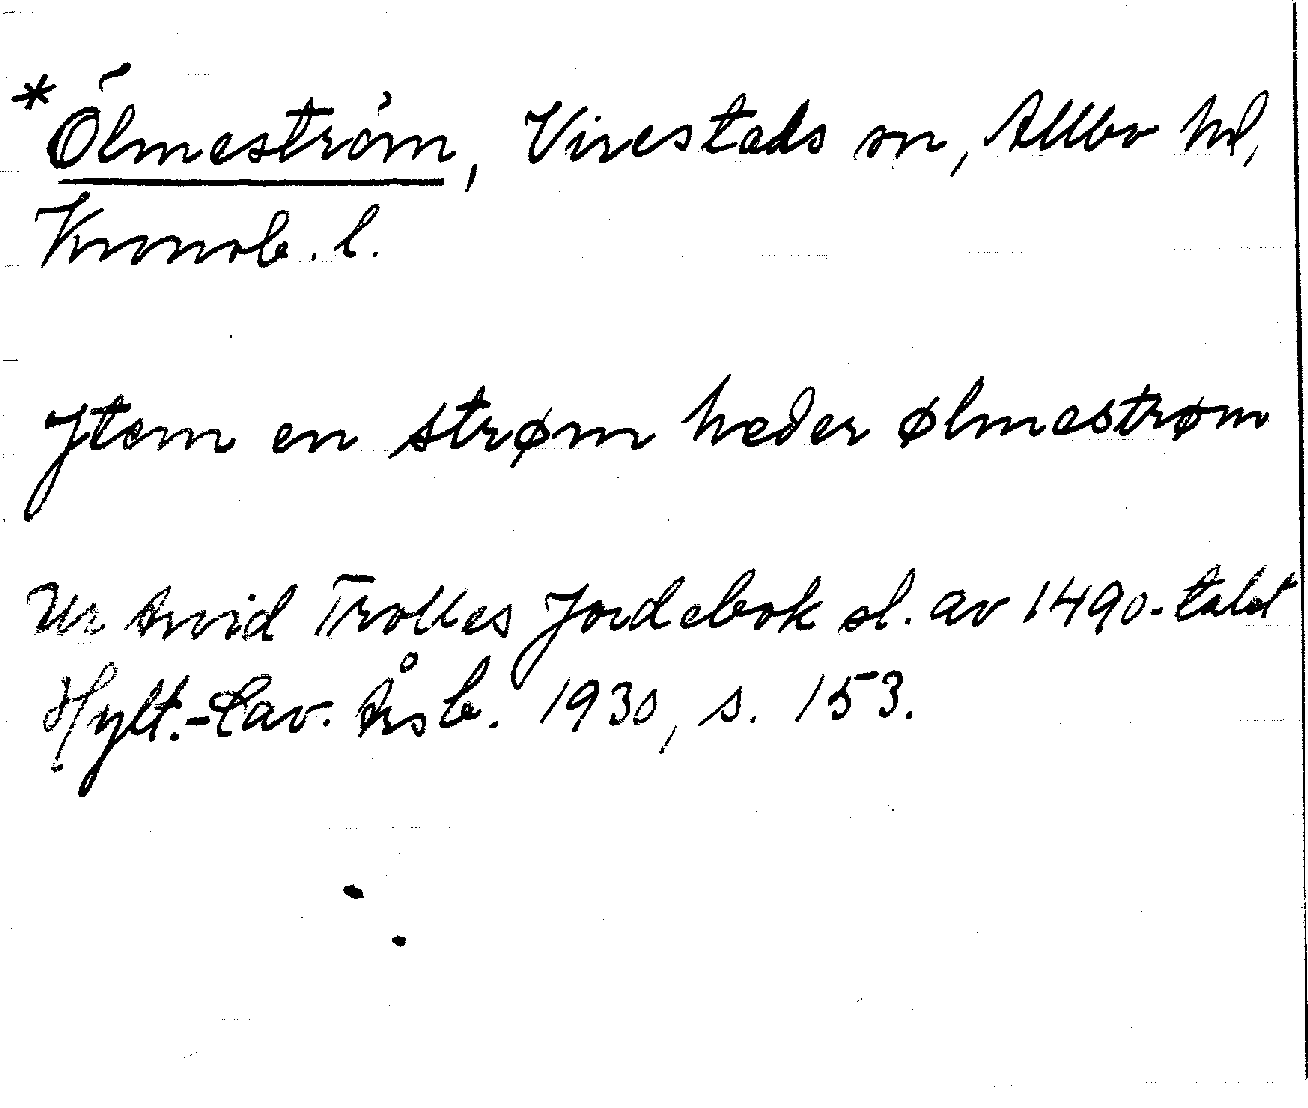 *Ölmeström, Virestads sn, Allbo hd,
Kronob. l.
Jtem en strøm heder ølmestrøm
Ur Arvid Trolles Jordebok sl. av 1490-talet
Hylt.-Cav. Årsb. 1930, s. 153.